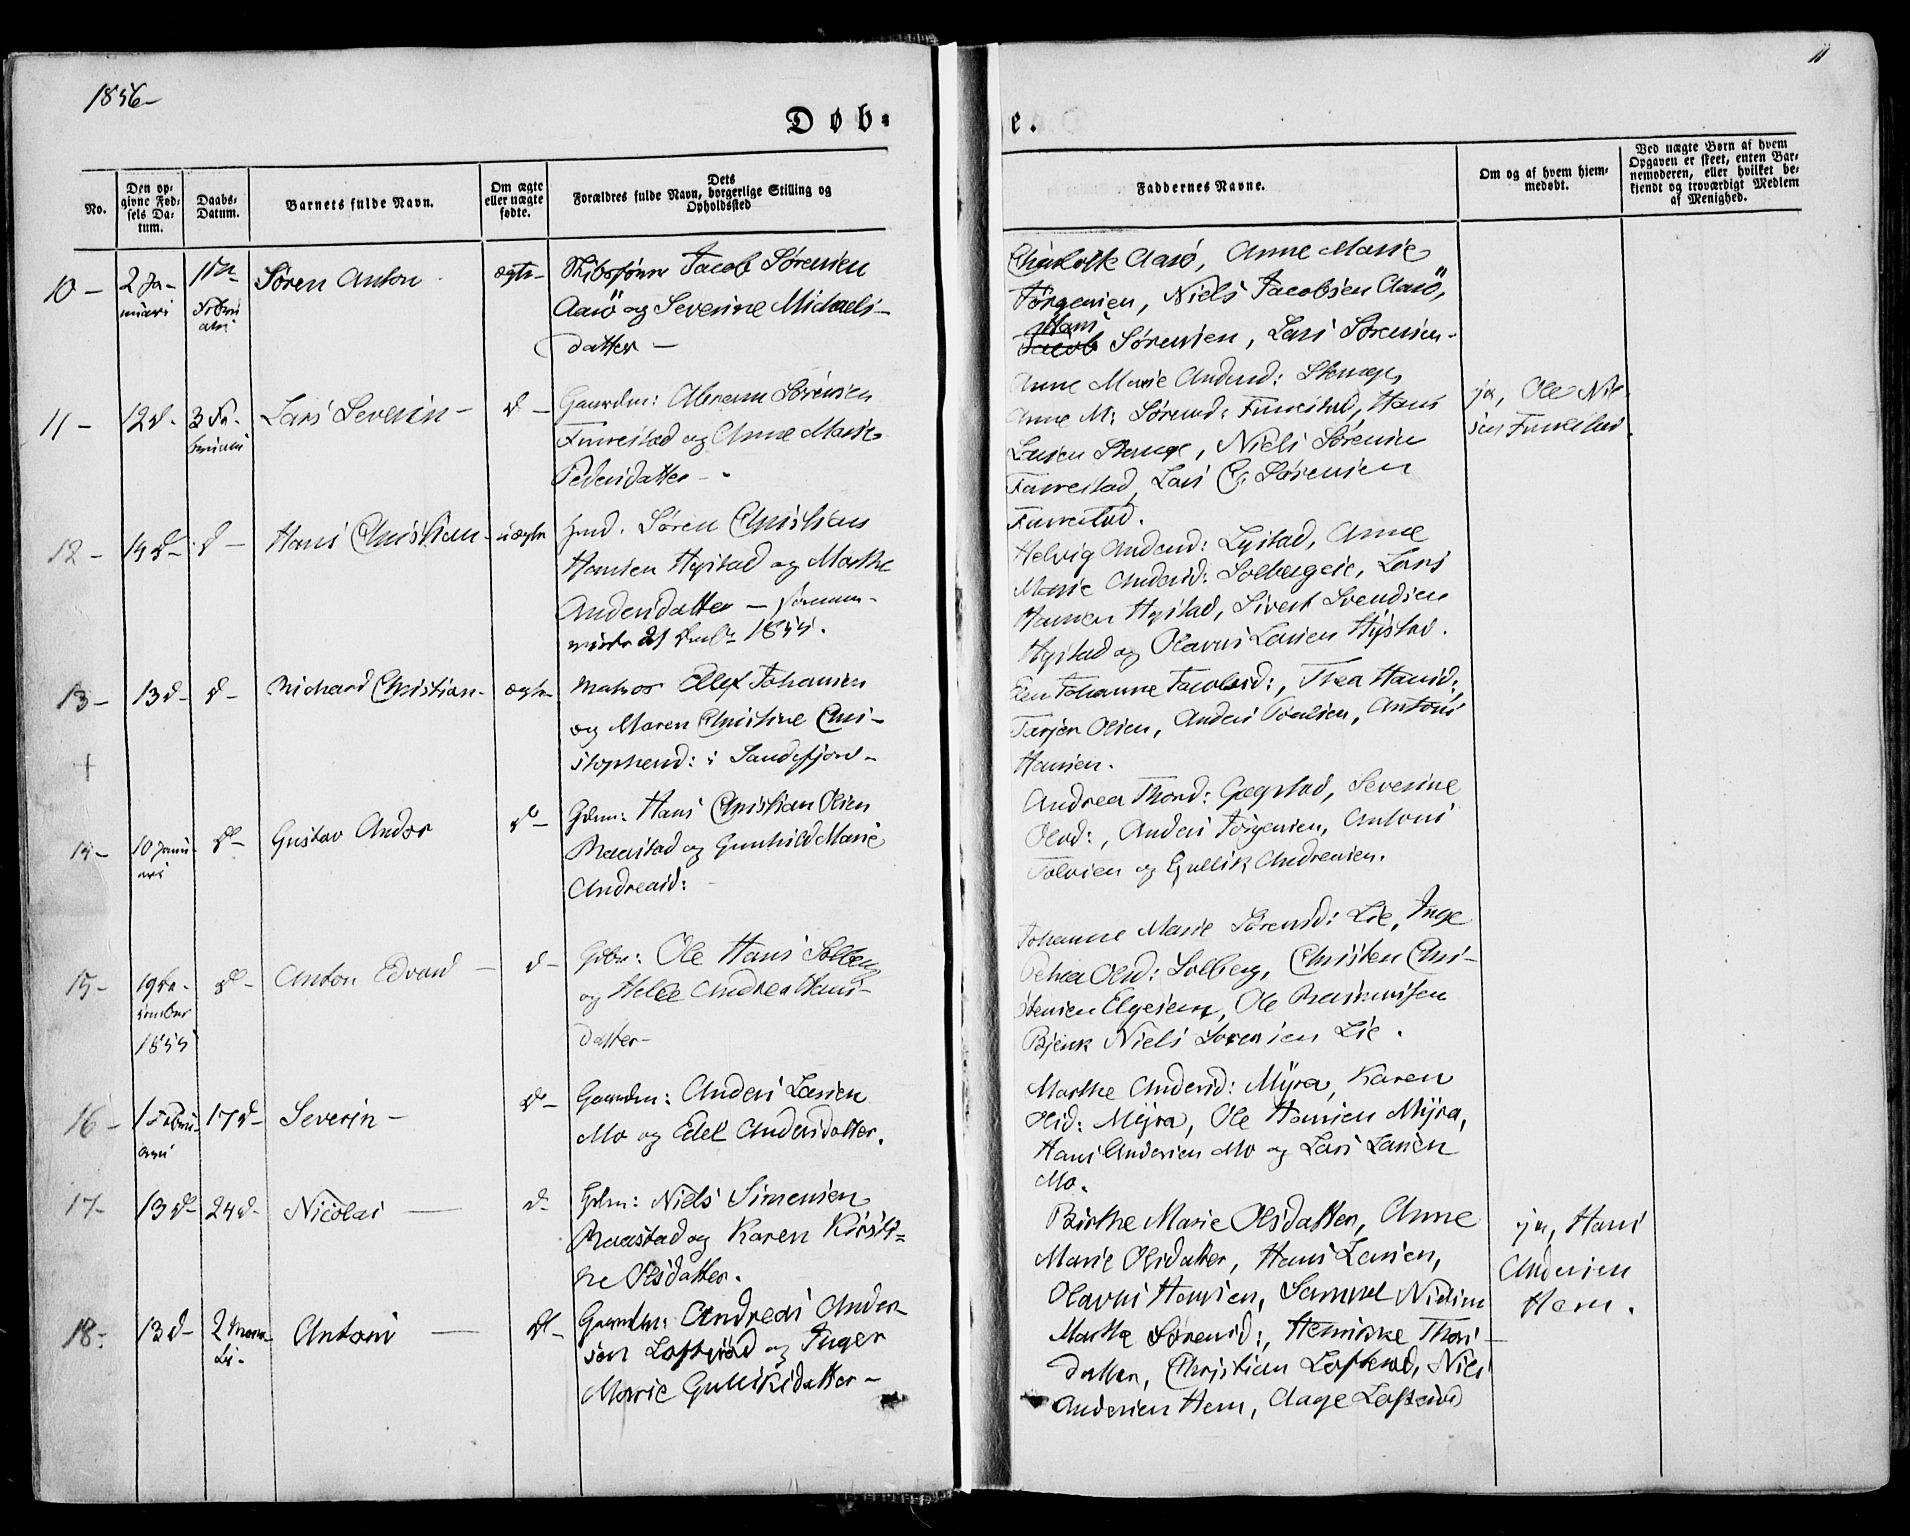 1856-
11
Døb=
e.
No.
Den op=
givne Fød=
sels Da=
tum.
Daabs=
Datum.
Barnets fulde Navn.
Om ægte
eller uægte
fødte.
Dets
Forældres fulde Navn, borgerlige Stilling og
Opholdssted
Faddernes Navne.
Om og af hvem hjem=
medøbt.
Ved uægte Børn af hvem
Opgaven er skeet, enten Bar=
nemoderen, eller hvilket be=
kjendt og troværdigt Medlem
af Menighed.
10 -
2 Ja-
nuari
Søren Anton
ægte
Jacob Sørensen
Aarø og Severine Michaels-
datter -
Aarø, Anne Marie
Jørgensen, Niels Jacobsen Aarø,
Hans
Jacob Sørensen, Lars Sørensen.
11 -
12 d-
3 Fe-
bruari
Lars Severin -
d -
Gaardm: Abram Sørensen
Furrestad og Anne Marie
Pedersdatter -
Anne Marie Andersd: Skouge,
Anne M: Sørensd: Furrestad, Hans
Larsen Skouge, Niels Sørensen
Furrestad, Lars C. Sørensen
Furrestad.
ja, Ole Niel-
sen Furrestad.
12 -
14 d-
d -
Hans Christian -
uægte
Søren Christian
Hansen Hystad og Marthe
Andersdatter -
1855.
Helvig Andersd: Lystad, Anne
Marie Andersd: Solbergeie, Lars
Hansen Hystad, Sivert Svendsen
Hystad og Olavus Larsen Hystad.
13 -
13 d-
d -
Richard Christian -
ægte
Matros Johansen
og Maren Christine Chri-
stophersd: i Sandefjord -
Johanne Jacobsd:, Thea Hansd:,
Tarjer Olsen, Anders Paulsen, Antoni
Hansen.
14 -
10 Janu
ari
d -
Gustav Andor
d -
Gdm: Hans Christian Olsen
Raastad og Gunhild Marie
Andreasd:
Andrea Thord: Gogstad, Severine
Olsd:, Anders Jørgensen, Antoni
Tolvsen og Gullik Andresen.
15 -
19 De-
cember
1855
d -
Anton Edvard -
d -
Gdm: Ole Hans Solberg
og Helle Andrea Hans-
datter -
Johanne Marie Sørensd: Lie, Inge
Petrea Olsd: Solberg, Christen Chri-
stensen Elgesem, Ole Rasmussen
Bjerk Niels Sørensen Lie.
16 -
1 Febru-
ari
17 d-
Severin -
d -
Gaardm: Anders Larsen
Mo og Edel Andersdatter.
Marthe Andersd: Myra, Karen
Olsd: Myra, Ole Hansen Myra,
Hans Andersen Mo og Lars Larsen
Mo.
17 -
13 d-
24 d-
Nicolai -
d -
Gdm: Niels Simensen
Raastad og Karen Kirsti=
ne Olsdatter.
Birthe Marie Olsdatter, Anne
Marie Olsdatter, Hans Larsen,
Olavus Hansen, Samuel Nielsen
ja, Hans
Andersen
Hem.
18 -
13 d-
2 Mar-
ts -
Antoni -
d -
Gaardm: Andreas Ander-
sen Løfterød og Inger
Marie Gulliksdatter -
Marthe Sørensd:, Henrikke Thors-
datter, Christian Løfterød, Niels
Andersen Hem, Aage Løfterød